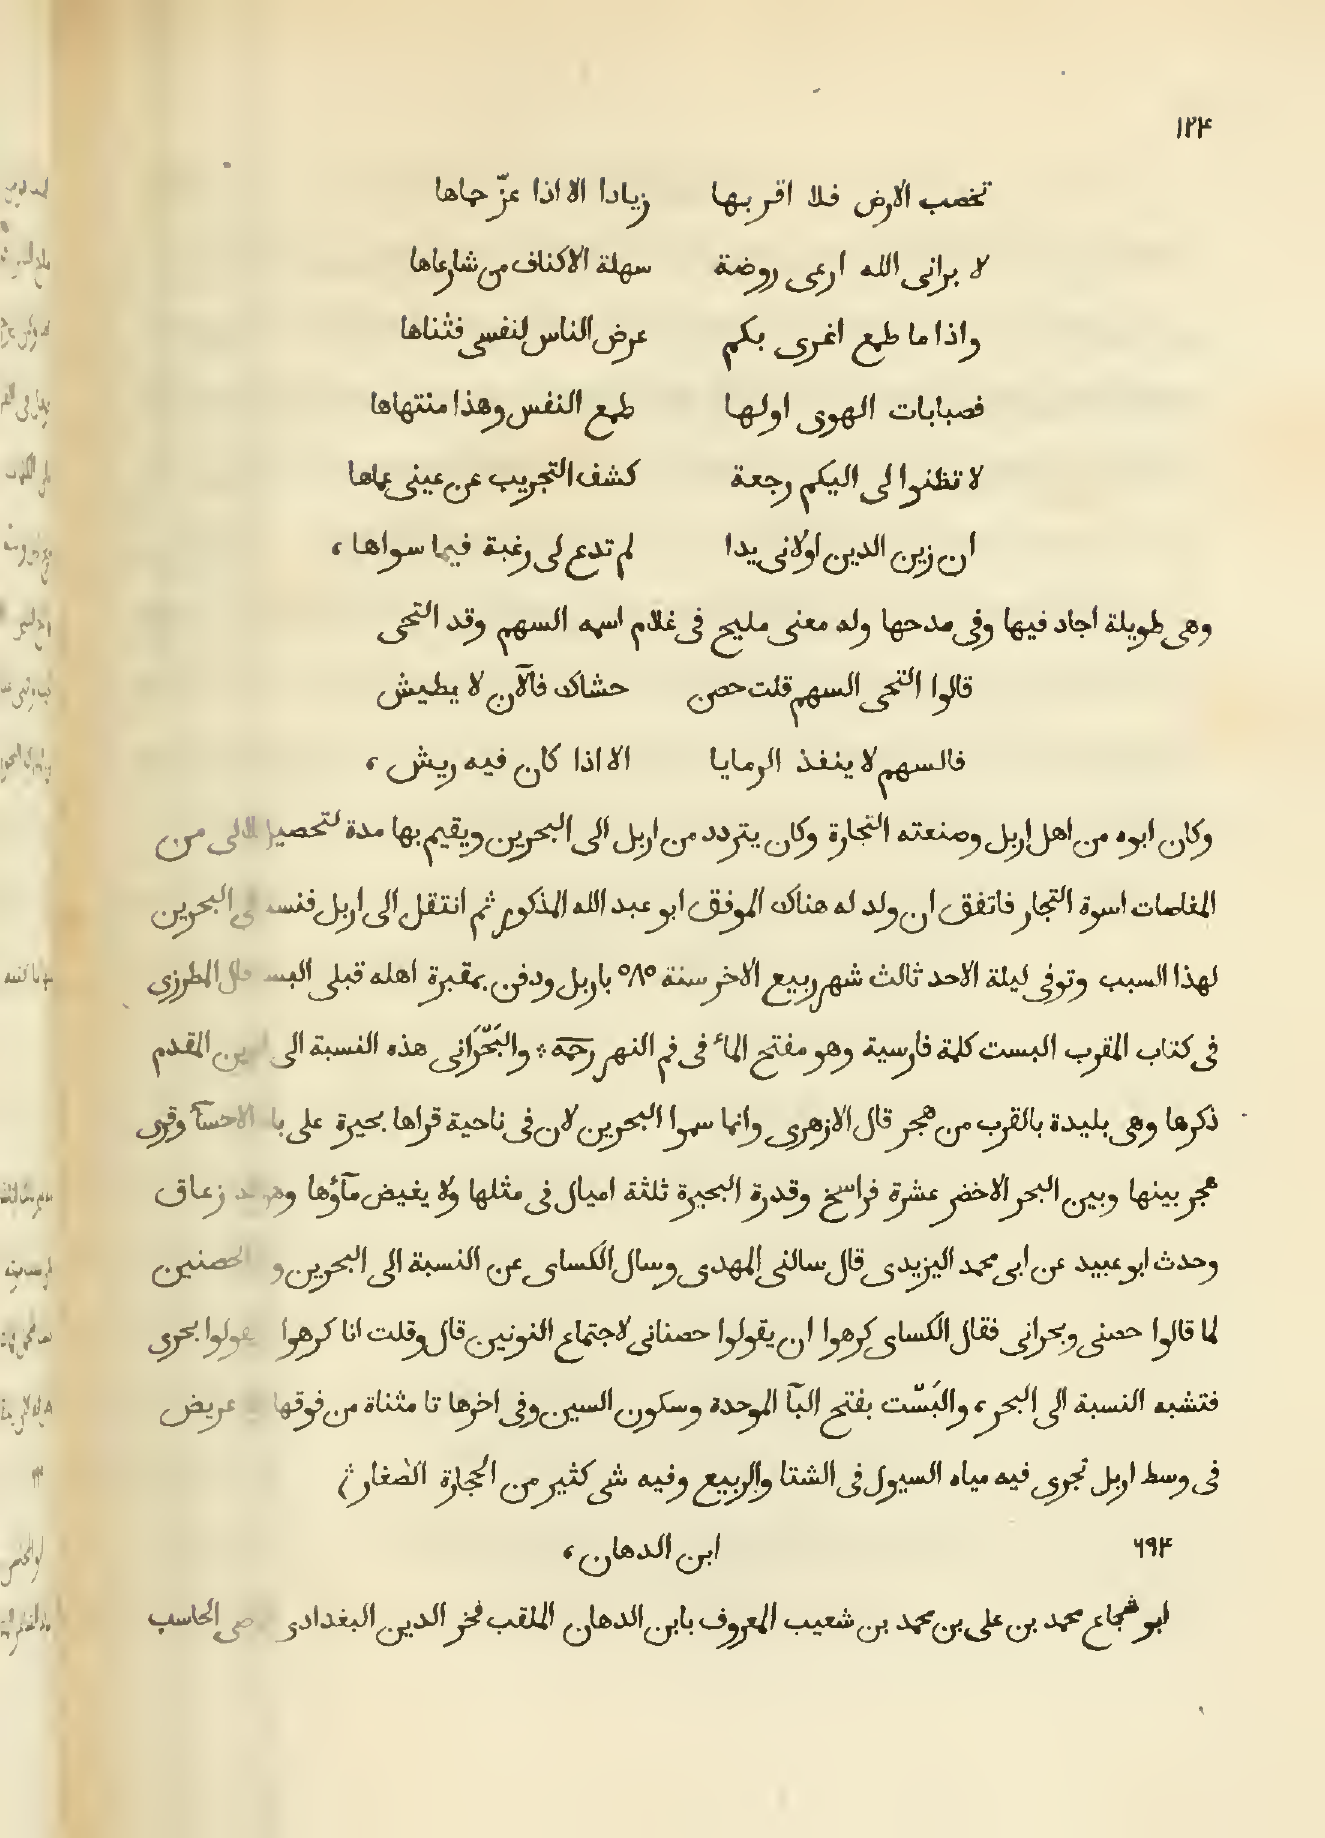 ١٢٤
تخصب الارض فلا اقربها زيادا الا اذا عزّ حماها
لا برانى الله ارعى روضة سهلة الاكناف من شارعاها
واذا ما طمع اغرى بكم عرض الناس لنفسى فثناها
فصبابات الهوى اولها طمع النفس وهذا منتهاها
لا تظنوا لى اليكم رجعة كشف التجريب عن عينى عماها
ان زين الدين اولانى يدا لم تدع لى رغبة فيما سواها ،
وهى طويلة اجاد فيها وفى مدحها وله معنى مليح فى غلام اسمه السهم وقد التحى
قالوا التحى السهم قلت حصن حشاك فالآن لا يطيش
فالسهم لا ينفذ الرمايا الا اذا كان فيه ريش ،
وكان ابوه من اهل اربل وصنعته التجارة وكان يتردد من اربل الى البحرين ويقيم بها مدة لتحصيل اللالى من
المغاصات اسوة التجار فاتفق ان ولد له هناك الموفق ابو عبد الله المذكور ثم انتقل الى اربل فنسب الى البحرين
لهذا السبب وتوفى ليلة الاحد ثالث شهر ربيع الاخر سنة ٥٨٥ باربل ودفن بمقبرة اهله قبلى البست قال المطرزى
فى كتاب المقرب البست كلمة فارسية وهو مفتح الماء فى فم النهر رحمه ۞ والبَحْرَانى هذه النسبة الى المقدم
ذكرها وهى بليدة بالقرب من هجر قال الازهرى وانما سموا البحرين لان فى ناحية قراها بحيرة على الاحسآ وقرى
هجر بينها وبين البحر الاخضر عشرة فراسخ وقدرة البحيرة ثلثة اميال فى مثلها ولا يغيض مآؤها زعاق
وحدث ابو عبيد عن ابى محمد اليزيدى قال سالنى المهدى وسال الكساى عن النسبة الى البحرين و الحصنين
لما قالوا حصنى وبحرانى فقال الكساى كرهوا ان يقولوا حصنانى لاجتماع النونين قال وقلت انا كرهوا يقولوا بحرى
فتشبه النسبة الى البحر ، والبَسْت بفتح البآ الموحدة وسكون السين وفى اخرها تا مثناة من فوقها عريض
فى وسط اربل تجرى فيه مياه السيول فى الشتا والربيع وفيه شى كثير من الحجارة الصغار
٦٩٤ ابن الدهان ،
ابو شجاع محمد بن على بن محمد بن شعيب المعروف بابن الدهان الملقب فخر الدين البغدادى الحاسب